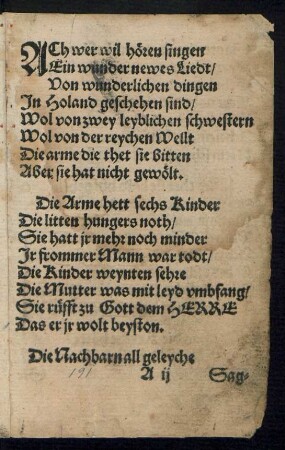 ACh wer wil hören singen
Ein wunder newes Liedt/
Von wunderlichen dingen
In Holand geschehen sind/
Wol von zwey leyblichen schwestern
Wol von der reychen Wellt
Die arme die thet sie bitten
Aber sie hat nicht gewölt.
Die Arme hett sechs Kinder
Die litten hungers noth/
Sie hatt jr mehr noch minder
Ir frommer Mann war todt/
Die Kinder weynten sehre
Die Mutter was mit leyd vmbfang/
Sie rüfft zu Gott dem HERRE
Das er jr wolt beyston.
Die Nachbarn all geleyche
191
A ij Sag-